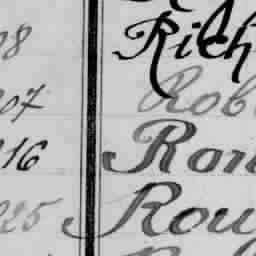 8 Rich
07 Rob
16 Ron
25 Rou